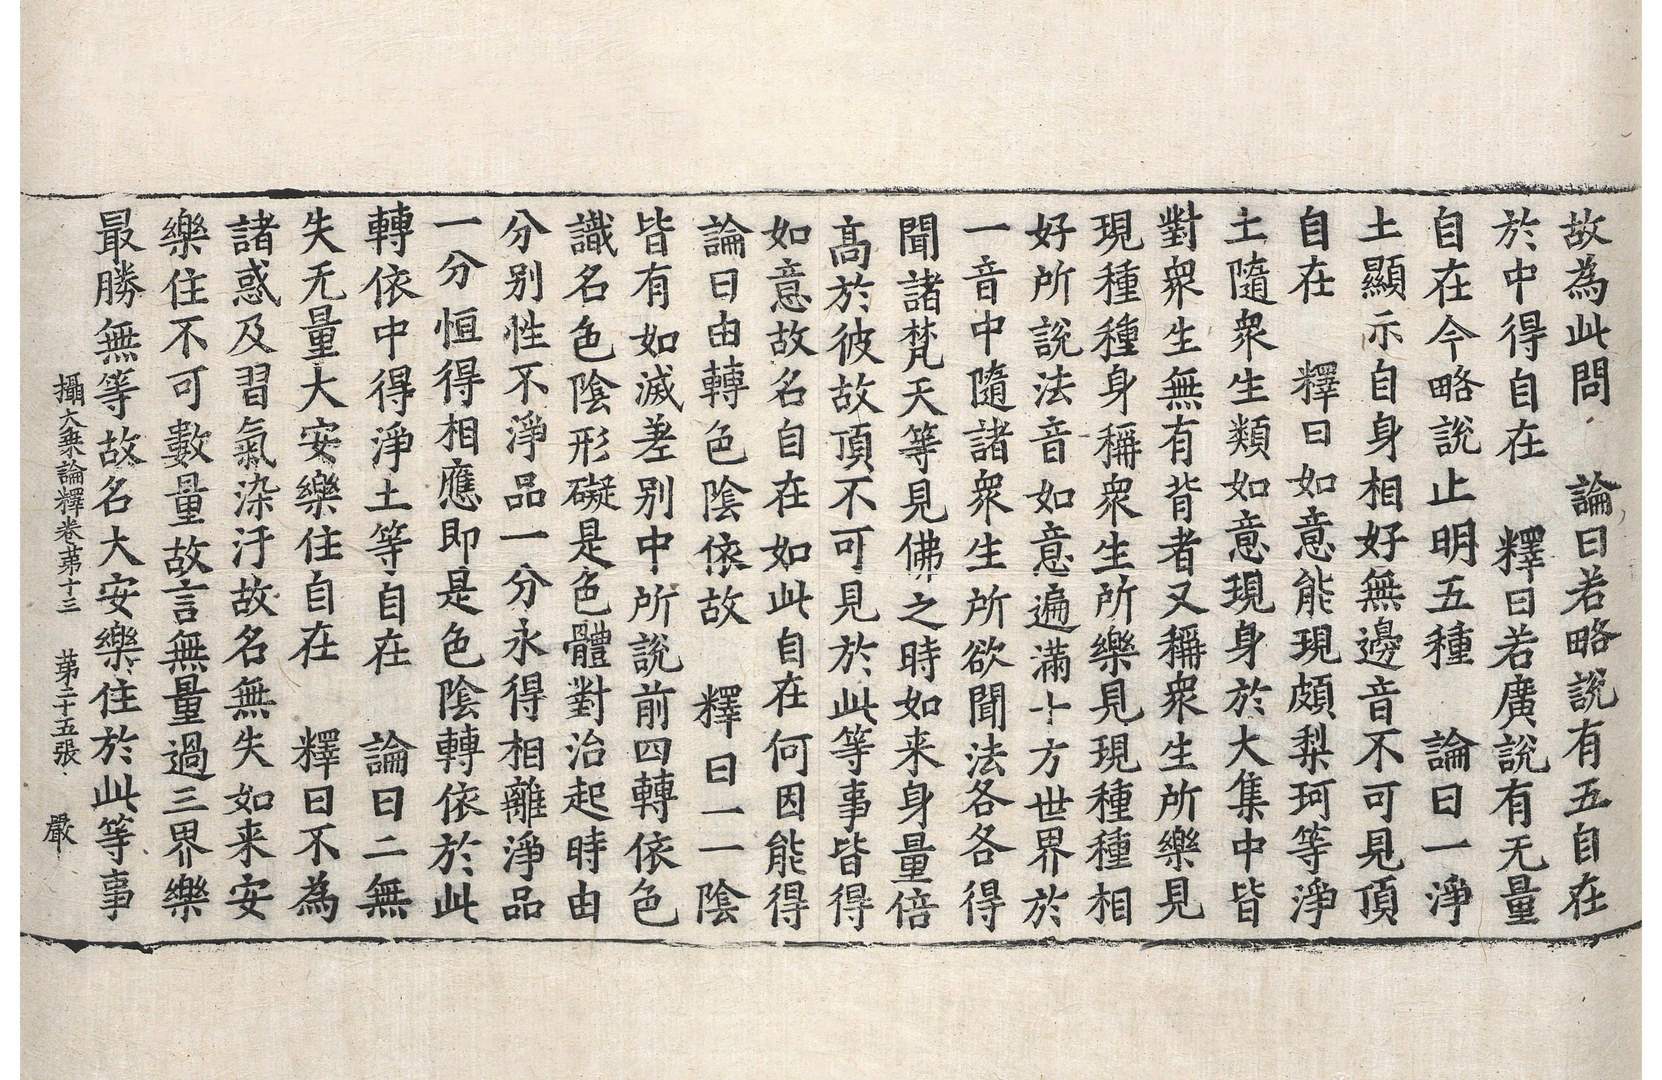 故為此問　論曰若略說有五自在
於中得自在　釋曰若廣說有无量
自在今略說止明五種　論曰一淨
土顯示自身相好無邊音不可見頂
自在　釋曰如意能現頗梨珂等淨
土隨衆生類如意現身於大集中皆
對衆生無有背者又稱衆生所樂見
現種種身稱衆生所樂見現種種相
好所說法音如意遍滿十方世界於
一音中隨諸衆生所欲聞法各各得
聞諸梵天等見佛之時如来身量倍
髙於彼故頂不可見於此等事皆得
如意故名自在如此自在何因能得
論曰由轉色陰依故　釋曰一一陰
皆有如滅差别中所說前四轉依色
識名色陰形礙是色體對治起時由
分别性不淨品一分永得相離淨品
一分恒得相應即是色陰轉依於此
轉依中得淨土等自在　論曰二無
失无量大安樂住自在　釋曰不為
諸惑及習氣染汙故名無失如来安
樂住不可數量故言無量過三界樂
最勝無等故名大安樂住於此等事
攝大乘論釋卷苐十三　苐二十五張　嚴